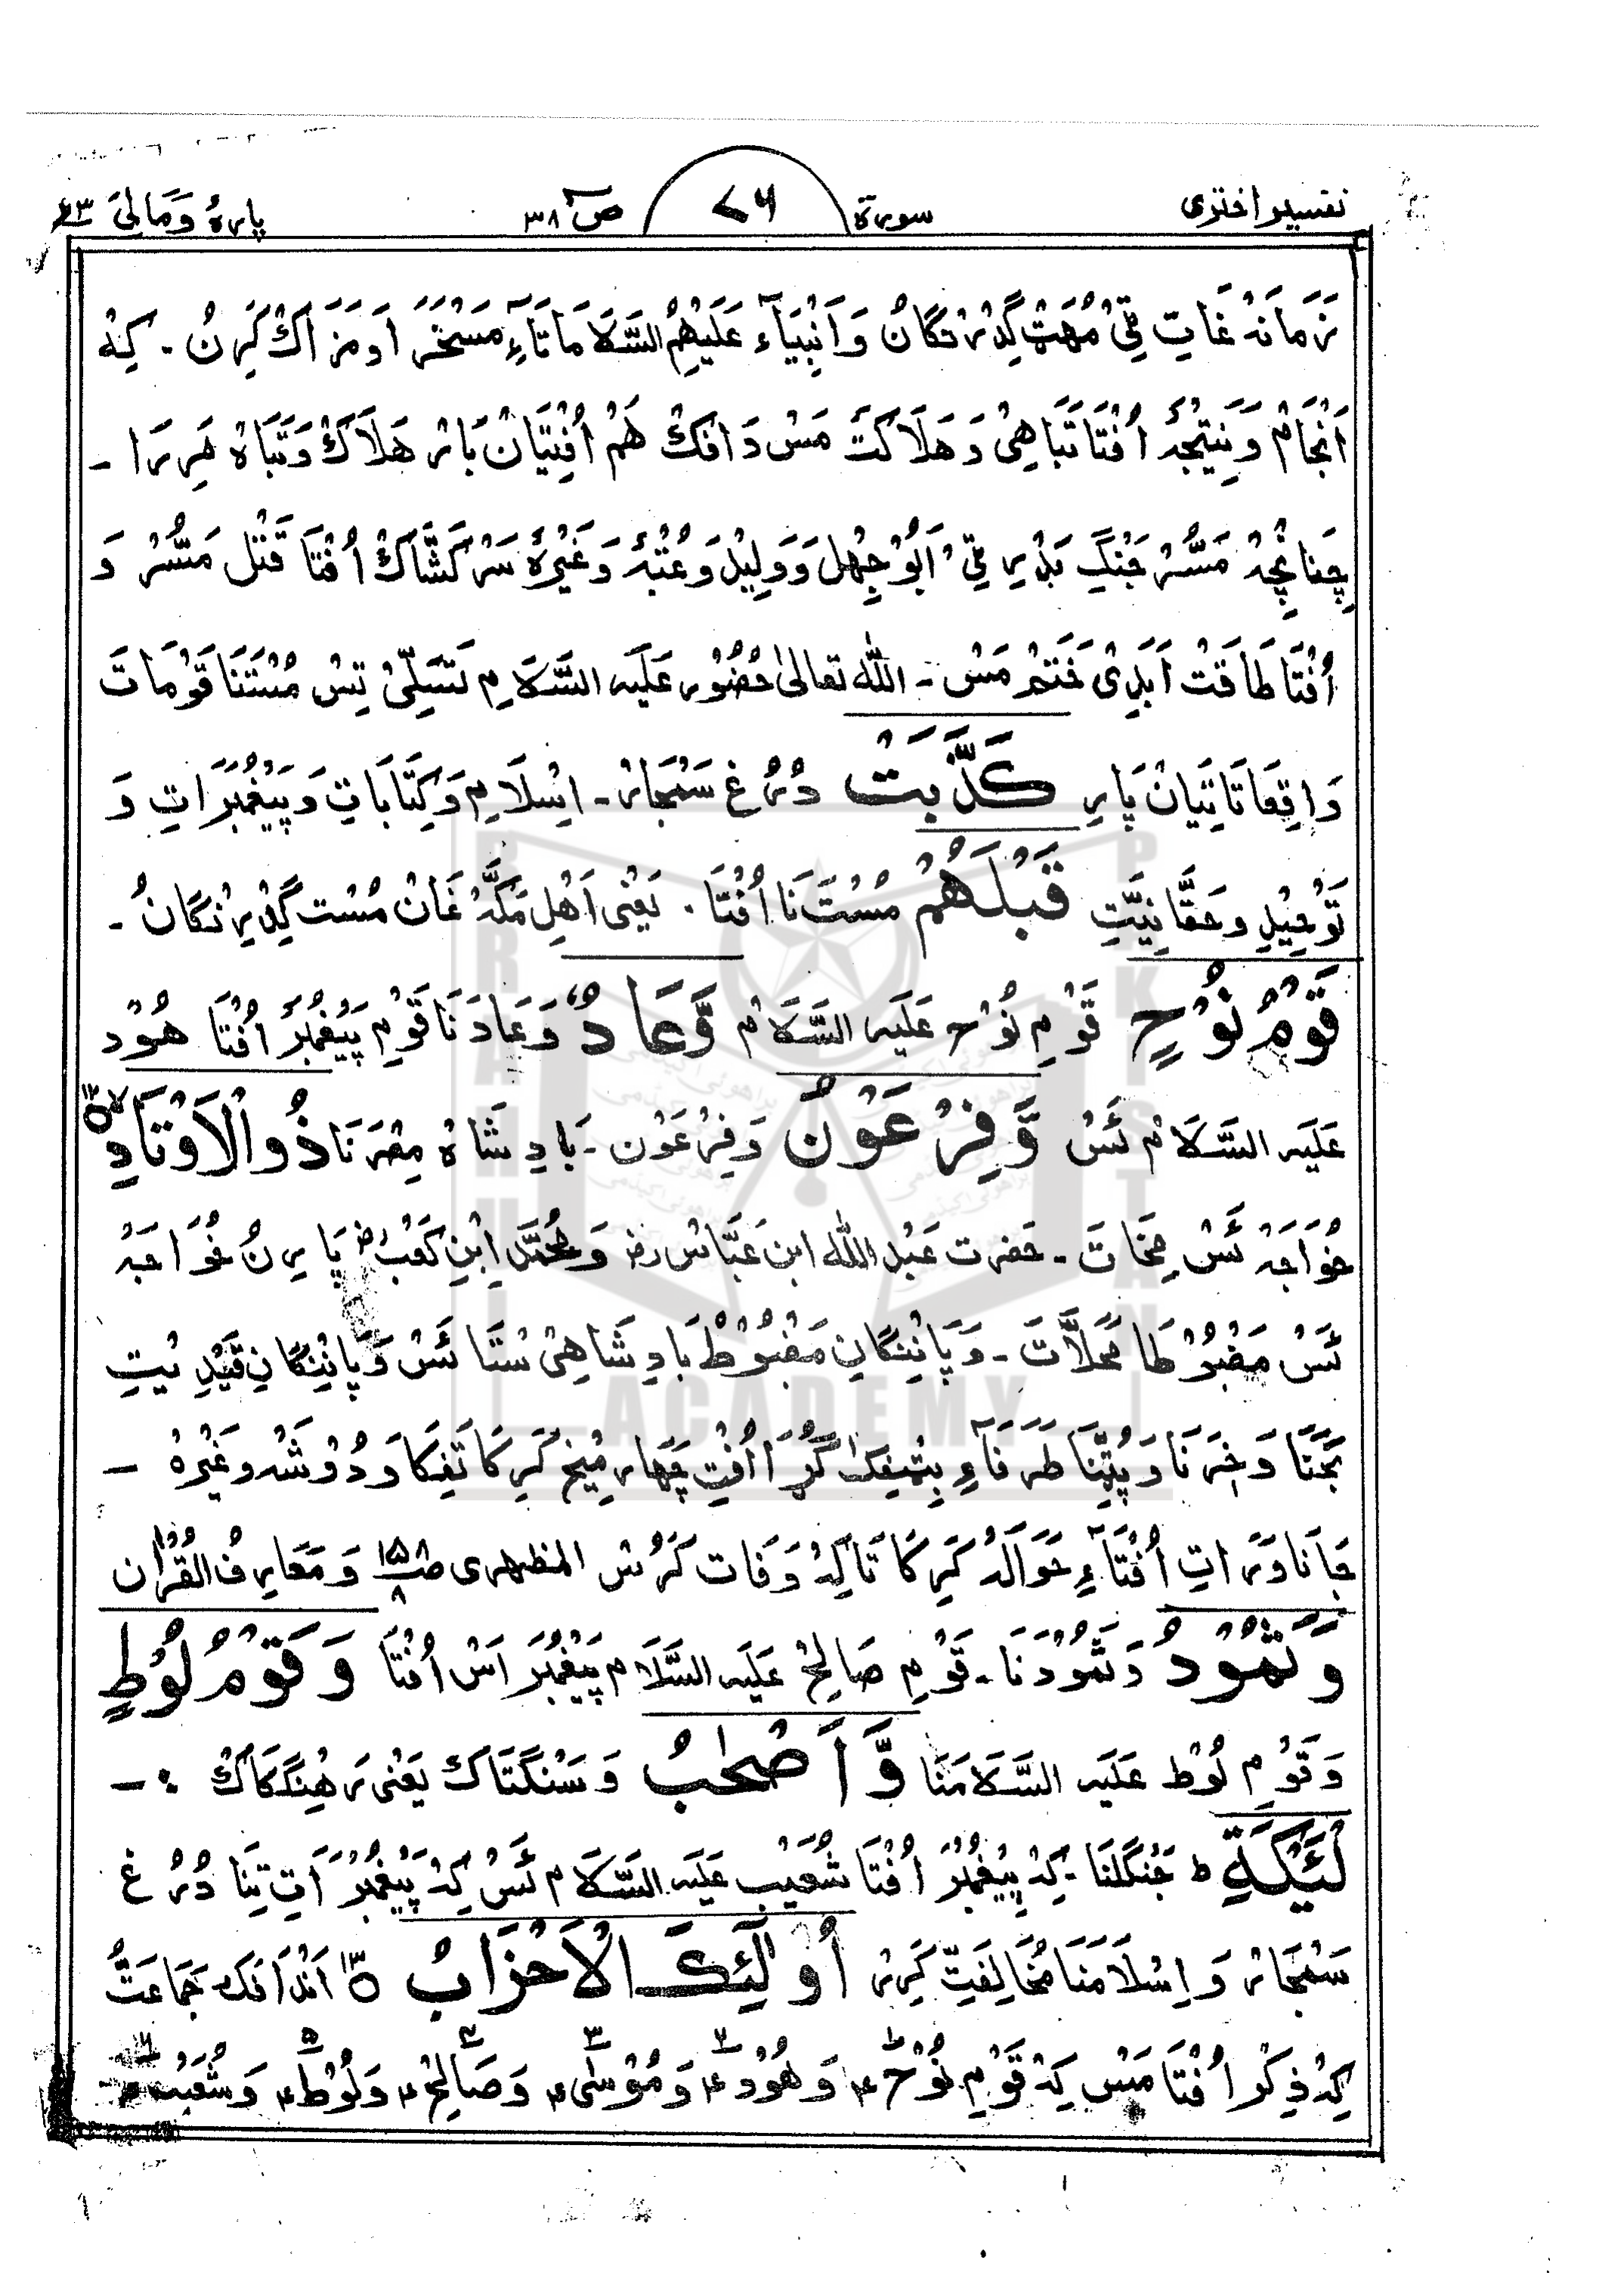 تفسیر اختری سورۃ ۷۶ صٓ ۳۸ پارۂ وَمَالِیَ ۲۳
زَمَانَہ غَاتِ ٹِی مُہَتْ گِدْرِنْگَانُ وَاَنْبِیَآء عَلَیْہِمُ السَّلَامَاتَآءِ مَسْخَرَہ اَو مَزَاکْ کَرِنُ ۔ کِہْ
اَنْجَامْ وَنَتِیْجَہ اُفْتَا تَبَاہِیْ وَ ہَلَاکَتَ مَسْ دَافَکْ ہَمْ اُفْتِیَانْ بَار ہَلَاکْ وَتَبَاہْ مَرِرَا ۔
چَنَانْچِہ مَسُّر جَنْگِ بَدْرِ ٹِی اَبُوْجِہْل وَوَلِیْدْ وَعُتْبَہ وَغَیْرَہ سَرْکَشَّاکْ اُفْتَا قَتْل مَسُّر وَ
اُفْتَا طَاقَتْ اَبَدِیْ خَتَم مَس ۔ اللّٰہ تعالیٰ حُضُوْر عَلَیہ السَّلَامِ تَسَلِّیْ تِسْ مُسْتَنَا قَوْمَاتَ
وَاقِعَاتَاتِیَانْ پَارِ کَذَّبَتْ دُرُغ سَمْجَار ۔ اِسْلَامِ وَکِتَابَاتِ وَپَیْغَمْبَرَاتِ وَ
تَوْحِیْدِ وَحَقَّانِیَّتِ قَبْلَہُمْ مُسْتَنَا اُفْتَا ۔ یَعْنی اَہْلِ مَکَّہ غَانْ مُسْت گِدْرِنْگَانُ ۔
قَوْمُ نُوْحٍ قَوْمِ نُوْح عَلَیہ السَّلَامْ وَّعَادٌ وَعَادَنَا قَوْمِ پَیْغَمْبَر اُفْتَا ہُوْد
عَلَیہ السَّلَامْ ئَسْ وَّفِرْعَوْنُ وَفِرْعَوْن ۔ بَادِشَاہْ مِصْرَنَا ذُوالْاَوْتَادِ ۱۲
خُوَاجَہ ئَسْ مِخَاتَ ۔ حَضرت عَبْدُ اللّٰہ ابن عَبَّاسْ رض وَمُحَمَّد اِبْنِ کَعْبْ رض پَارِنُ خُوَاجَہ
ئَسْ مَضْبُوْطَا مَحَلَّاتَ ۔ وَپَانِنْگَانِ مَضْبُوْطْ بَادِشَاہِیْ سْتَا ئَسْ وَپَانِنْگَانِ قَیْدِیْتِ
وَخَرَنَا وَ طَرَفَآءِ اُفْتِ چَہَار مِیْخ کَرِکَا وَ دُوْشَہ وغَیْرَہْ ۔
جَانَاوَرَاتِ اُفْتَآءِ حَوَالَہ کَرِکَا تَاکِہْ وَفَات کَرُس المظہری ص ۱۵۸/۸ وَ مَعَارِفُ القُرْاٰن
وَثَمُوْدُ وَثَمُوْدَنَا ۔ قَوْمِ صَالِحْ عَلَیہ السَّلَام پَیْغَمْبَر اَسْ اُفْتَا وَقَوْمُ لُوْطٍ
وَ قَوْمِ لُوْط عَلَیہ السَّلَامَنَا وَّاَصْحٰبُ وَسَنْگَتَاک یَعْنی رَہِنْگَکَاکْ :۔
لْئَیْکَۃِ ط جَنْگَلْنَا ۔ کِہْ پَیْغَمْبَر اُفْتَا شُعَیْب عَلَیہ السَّلَام ئَسْ کِہْ پَیْغَمْبَرَاتِ تِنَا دُرُغ
سَمْجَار وَ اِسْلَامَنَا مُخَالِفَتِ کَرِر اُولٰٓئِکَ الْاَحْزَابُ ۱۳ اَنْدَافَکْ جَمَاعَتُ
کِہْ ذِکْر اُفْتَا مَسْ کِہْ قَوْمِ نُوْح ؑ ۱ وَ ہُوْد ؑ ۲ وَ مُوْسٰی ؑ ۳ وَ صَالِحْ ؑ ۴ وَ لُوْط ؑ ۵ وَ شُعَیْب ؑ ۶
BRAHUI ACADEMY PAKISTAN